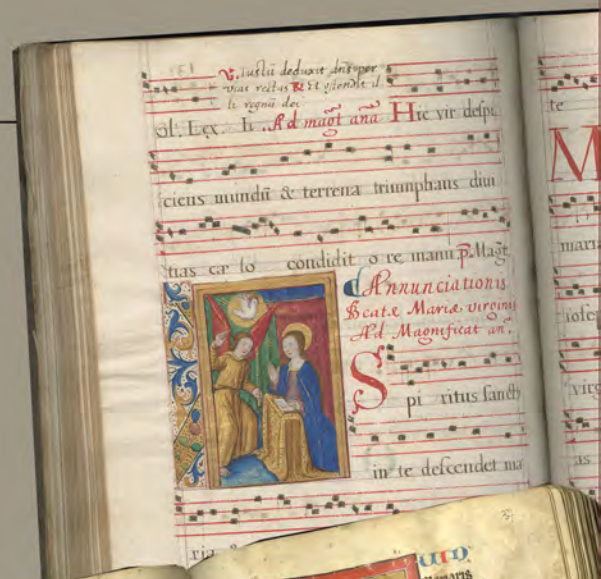 ℣. Iustū deduxit dn̄s per
vias rectas ℞ Et ostendit il
li regnū dei
ol. Lex. Ad magt̄ anā Hic vir despi
ciens mundū & terrena triumphans divi
tias cæ lo condidit o re manu. p. Magt̄
Annunciationis
Beatæ Mariæ virginis
Ad Magnificat an.
Spi ritus sanct
in te descendet ma
ria
te
M
maria
iose
virg
as